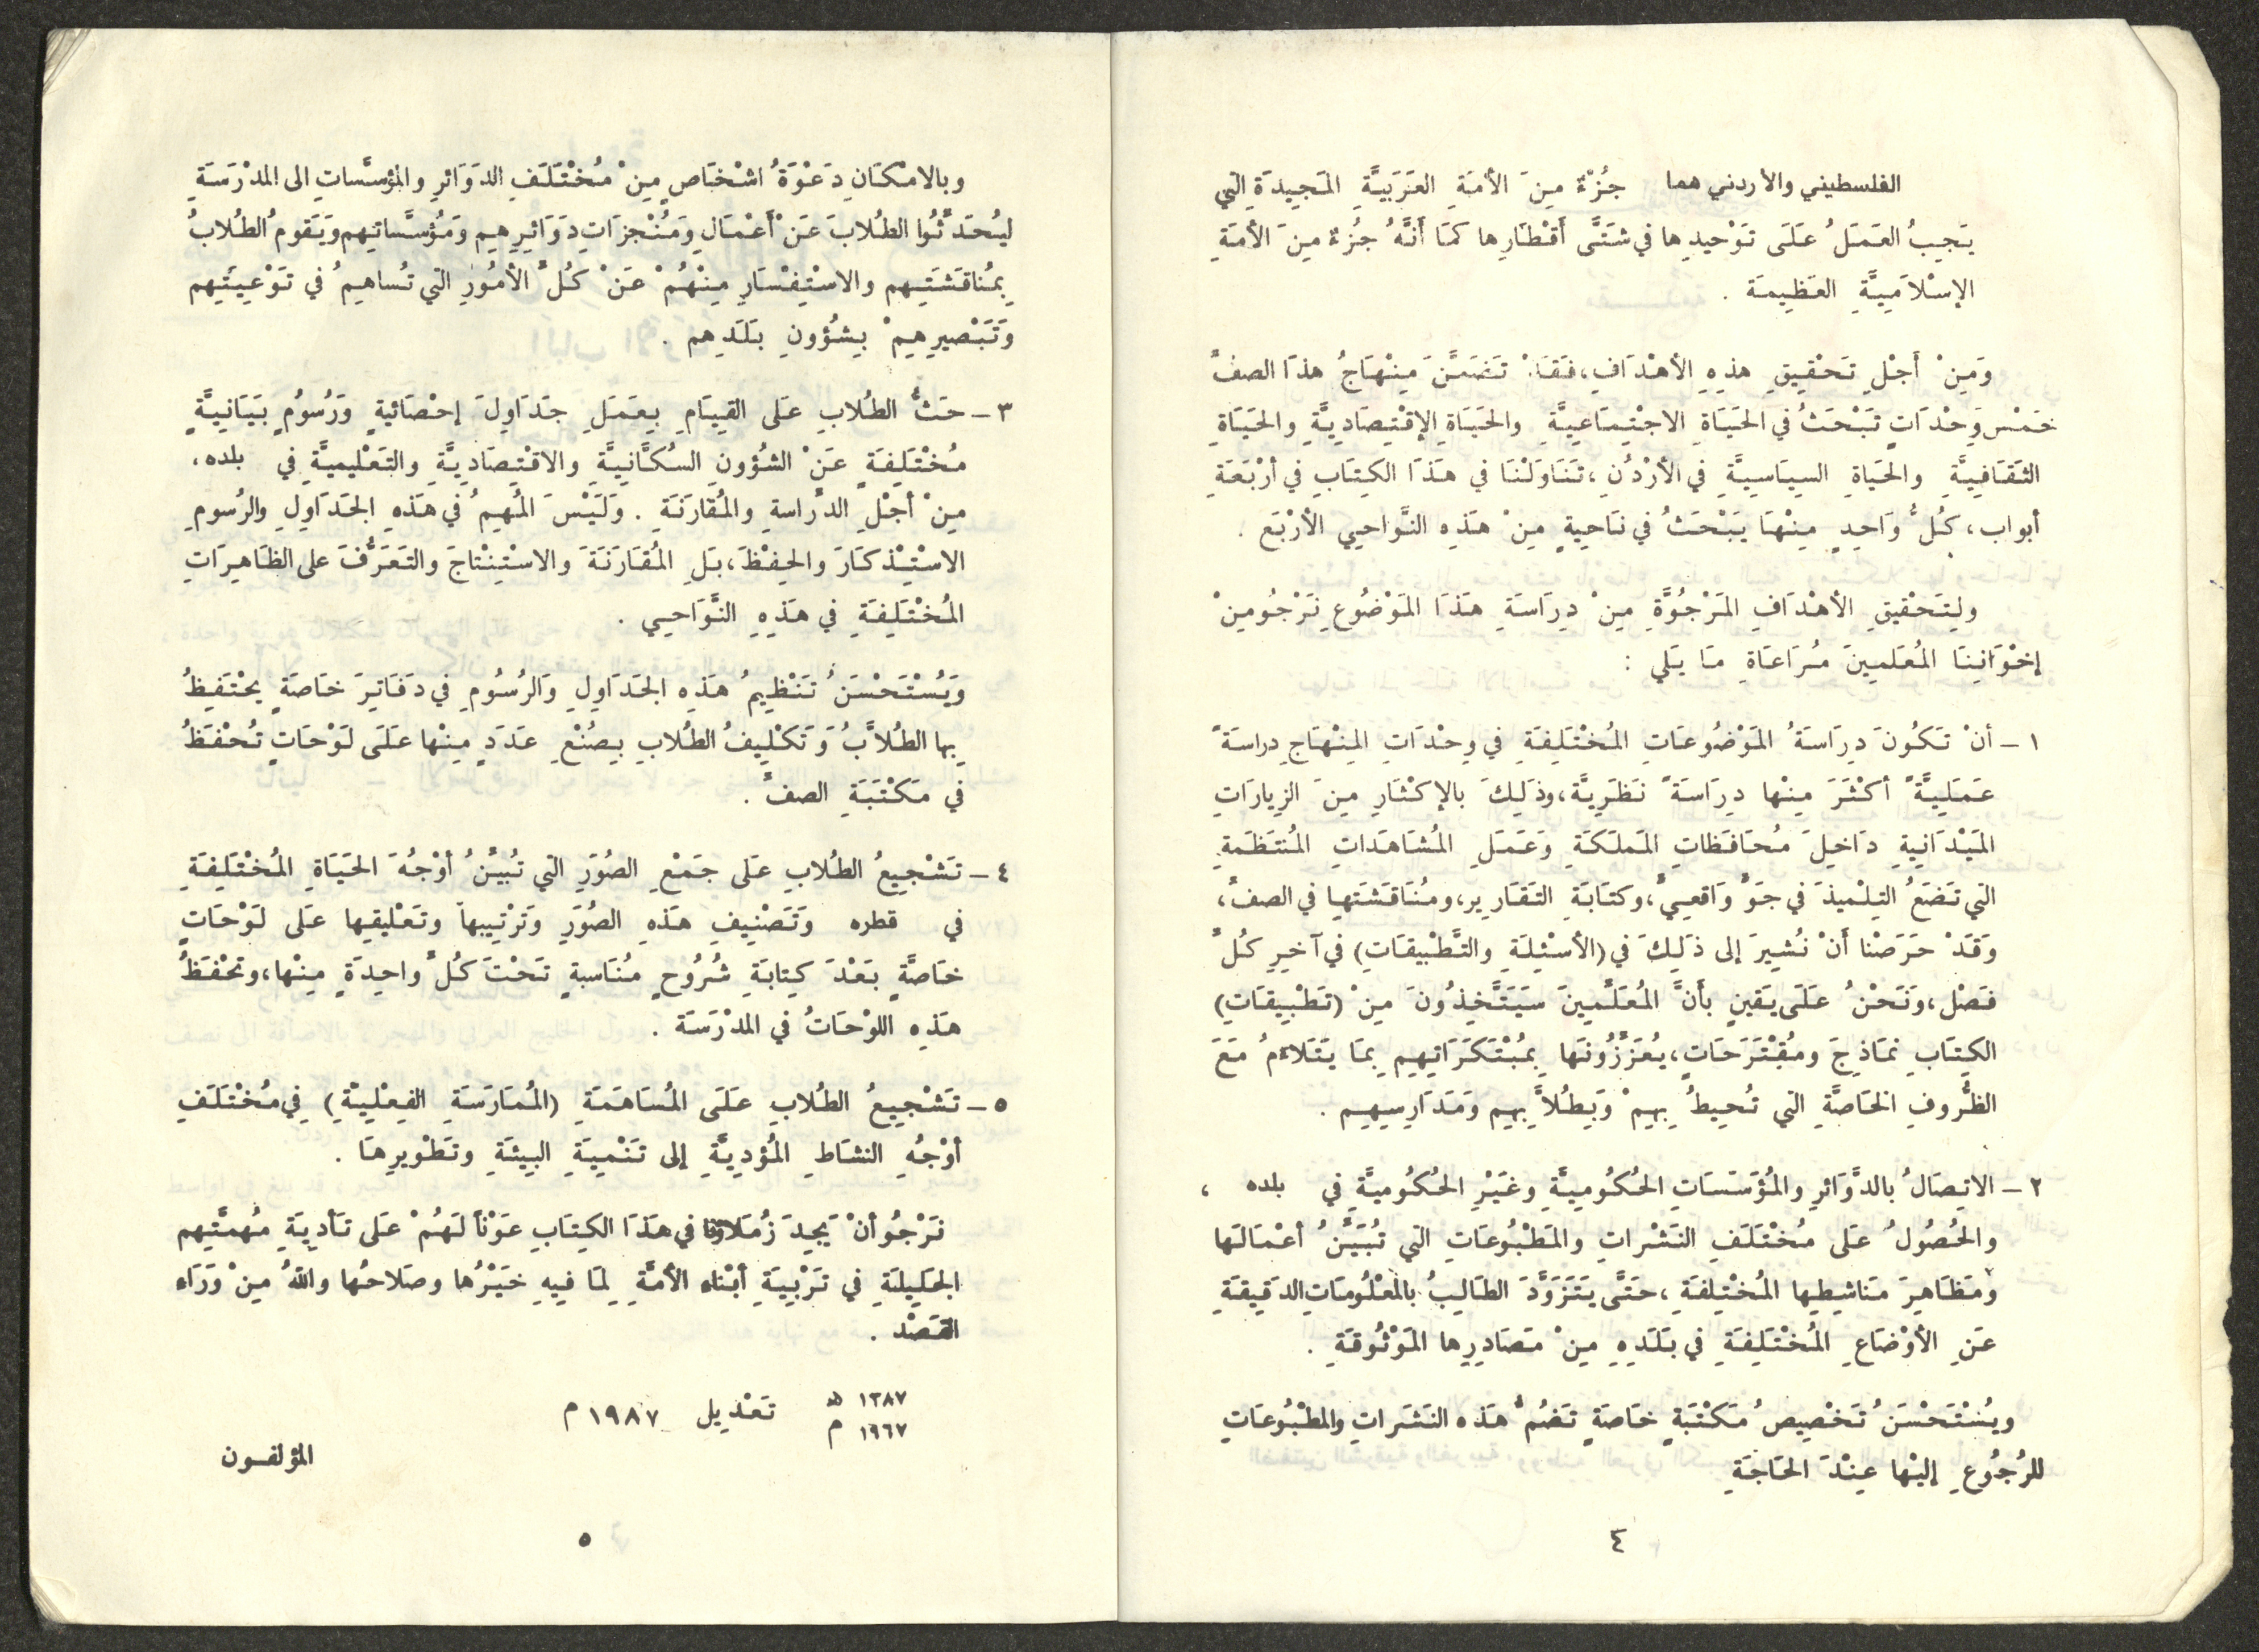 الفلسطيني والأردني هما جُزْءٌ مِنَ الأُمَةِ العَرَبيَّةِ المَجِيدَةِ التي
يَجِبُ العَمَلُ عَلَى تَوْحيدِها في شَتَّى أَقْطَارِها كمَا أَنَّهُ جُزءٌ مِنَ الأمَةِ
الإسْلاَميَّةِ العَظِيمَة .
وَمِنْ أَجْلِ تَحْقيقِ هذِهِ الأهْدَافِ، فَقَدْ تَضَمَّنَ مِنْهَاجُ هذَا الصفِّ
خَمْسَ وَحْدَاتٍ تَبْحَثُ في الحَيَاةِ الاجْتِمَاعيَّةِ والحَيَاةِ الإقْتِصَادِيَّةِ والحَيَاةِ
الثَقَافِيَّةِ والحَياةِ السيَاسِيَّةِ في الأرْدُنِ، تَنَاوَلْنَا في هَذَا الكِتَابِ في أرْبَعَةِ
أبواب، كُلُّ وَاحِدٍ مِنْهَا يَبْحَثُ في نَاحيةٍ مِنْ هَذِه النَّواحيي الأرْبَع .
ولِتَحْقيقِ الأهْدَافِ المَرْجُوَّةِ مِنْ دِرَاسَةِ هَذَا المَوْضُوعِ نَرْجُو مِنْ
إخْوَانِنَا المُعَلمِينَ مُرَاعَاةِ مَا يَلي :
١ - أنْ تَكُونَ دِرَاسَةُ المَوْضُوعَاتِ المُخْتَلِفَةِ في وِحْدَاتِ المِنْهَاجِ دراسَةً
عَمَلِيَّةً أكْثَرَ مِنْها دِرَاسَةً نَظَرِيَّة، وذَلِكَ بالإكْثَارِ مِنَ الزِيارَاتِ
المَيْدَانِيةِ دَاخِلَ مُحَافَظَاتِ المَملَكَةِ وَعَمَلِ المُشَاهَدَاتِ المُنتَظَمَةِ
التي تَضَعُ التِلْميذَ في جَوٍّ وَاقعِيٍّ، وكتَابَةِ التَقَارِير، ومُنَاقَشَتَها في الصفِّ،
وَقَدْ حَرَصْنا أَنْ نُشِيرَ إلى ذَلِكَ في (الأسْئِلَةِ والتَّطْبيقَاتِ) في آخِرِ كُلِّ
فَصْل، وَنَحْنُ عَلَى يَقينٍ بأَنَّ المُعَلِّمِينَ سَيَتَّخِذُونَ مِنْ (تَطْبِيقَاتِ)
الكِتَابِ نَمَاذِجَ ومُقْتَرَحَاتٍ، يُعَزِّزُونَهَا بِمُبْتَكَرَاتِهِم بِمَا يَتَلاءَمُ مَعَ
الظُّروفِ الخَاصَّةِ التي تُحِيطُ بِهِمْ وَبِطُلاَّبِهِم وَمَدَارِسِهِم .
٢ - الاتِصَالُ بالدَّوَائرِ والمُؤَسَسَاتِ الحُكُومِيةِ وغَيْرِ الحُكُومِيَّةِ في بلده ،
والحُصُولُ عَلى مُخْتَلَفِ النَشْراتِ والمَطْبُوعَاتِ التي تُبَيِّنُ أعْمَالَها
وَمَظَاهِرَ مَناشِطِها المُخْتِلِفَةِ، حَتَّى يَتَزَوَّدَ الطَالِبُ بالمَعْلُومَاتِ الدقيقَةِ
عَنِ الأوْضَاعِ المُخْتَلِفَةِ في بَلَدِهِ مِنْ مَصَادِرِها المَوْثُوقَةِ .
ويُسْتَحْسَنُ تَخْصِيصُ مَكْتَبَةٍ خَاصَةٍ تَضُمُّ هَذه النَشَراتِ والمطْبُوعَاتِ
للرُجُوعِ إليْها عِنْدَ الحَاجَةِ
٤
وبالامْكَانِ دَعْوَةُ اشْخَاصٍ مِنْ مُخْتَلَفِ الدوَائرِ والمؤسَّساتِ الى المدْرَسَةِ
ليُحَدِّثُوا الطُلابَ عَنْ أَعْمَالِ وَمُنْجَزَاتِ دَوَائِرِهِم وَمُؤسَّساتِهِم وَيَقومُ الطُلابُ
بِمُناقَشَتِهِم والاسْتِفْسَارِ مِنْهُمْ عَنْ كُلِّ الأمُورِ التي تُساهِمُ في تَوْعِيَتِهِم
وَتَبْصيرِهِمْ بِشُؤُونِ بَلَدِهم .
٣ - حَثُّ الطُلابِ عَلى القِيَامِ بِعَمَلِ جَدَاوِلَ إحْصَائيةٍ وَرُسُومٍ بَيَانِيَّةٍ
مُخْتَلِفَةٍ عَنْ الشُؤُونِ السُكَّانِيَّةِ والاقْتِصَادِيَّةِ والتَعْليميَّةِ في بلده،
مِنْ أجْلِ الدِّراسةِ والمُقَارَنَةِ . وَلَيْسَ المُهِمُ في هَذهِ الجَدَاوِلِ والرُسومِ
الاسْتِذكَارَ والحِفْظَ، بَلِ المُقَارَنَةَ والاسْتِنْتَاجَ والتَعَرُّفَ على الظَاهِرَاتِ
المُخْتَلِفَةِ في هَذِهِ النَّوَاحيي .
وَيُسْتَحْسَنُ تَنْظِيمُ هَذِه الجَدَاوِلِ وَالرُسُومِ في دَفَاتِرَ خَاصَةٍ يَحْتَفِظُ
بِها الطُلاَّبُ وَتَكْلِيفُ الطُلابِ بِصُنْعِ عَدَدٍ مِنْها عَلَى لَوْحَاتٍ تُحْفَظُ
في مَكْتَبَةِ الصفِّ .
٤ - تَشْجِيعُ الطُلابِ عَلى جَمْعِ الصُوَرِ التي تُبيِّنُ أوْجُهَ الحَيَاةِ المُخْتَلِفَةِ
في قطره وَتَصْنِيفِ هَذهِ الصُوَرِ وَتَرْتِيبهاَ وتَعْليقِها عَلى لَوْحَاتٍ
خَاصَّةٍ بَعْدَ كِتابَةِ شُرُوحٍ مُنَاسبةٍ تَحْتَ كُلِّ واحِدَةٍ مِنْها، وتُحْفَظُ
هَذِه اللوْحَاتُ في المدْرَسَة .
٥ - تَشْجِيعُ الطُلابِ عَلَى المُسَاهَمَةِ (المُمَارَسَةِ الفِعْلِيّةِ) فِي مُخْتَلَفِ
أوْجُهِ النشَاطِ المُؤدِيَّةِ إلى تَنْمِيَةِ البِيئَةِ وتَطْويرِهَا .
نَرْجُو أنْ يَجِدَ زُمَلاؤنا في هَذَا الكِتَابِ عَوْناً لَهُمْ عَلى تَأدِيَةِ مُهمَّتِهِم
الجَلِيلَةِ في تَرْبِيَةِ أبْناء الأمَّةِ لِمَا فيهِ خَيْرُها وصَلاحُها واللّهُ مِنْ وَرَاء
القَصْد .
١٣٨٧ هـ
١٩٦٧ م
تَعْديل ١٩٨٧ م
المؤلفون
٥